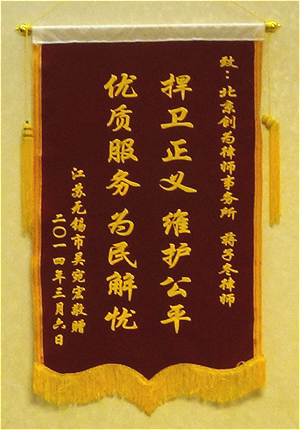 致：北京创为律师事务所 蒋子冬律师
捍卫正义 维护公平
优质服务 为民解忧
江苏无锡市吴宛宏敬赠
二〇一四年三月六日